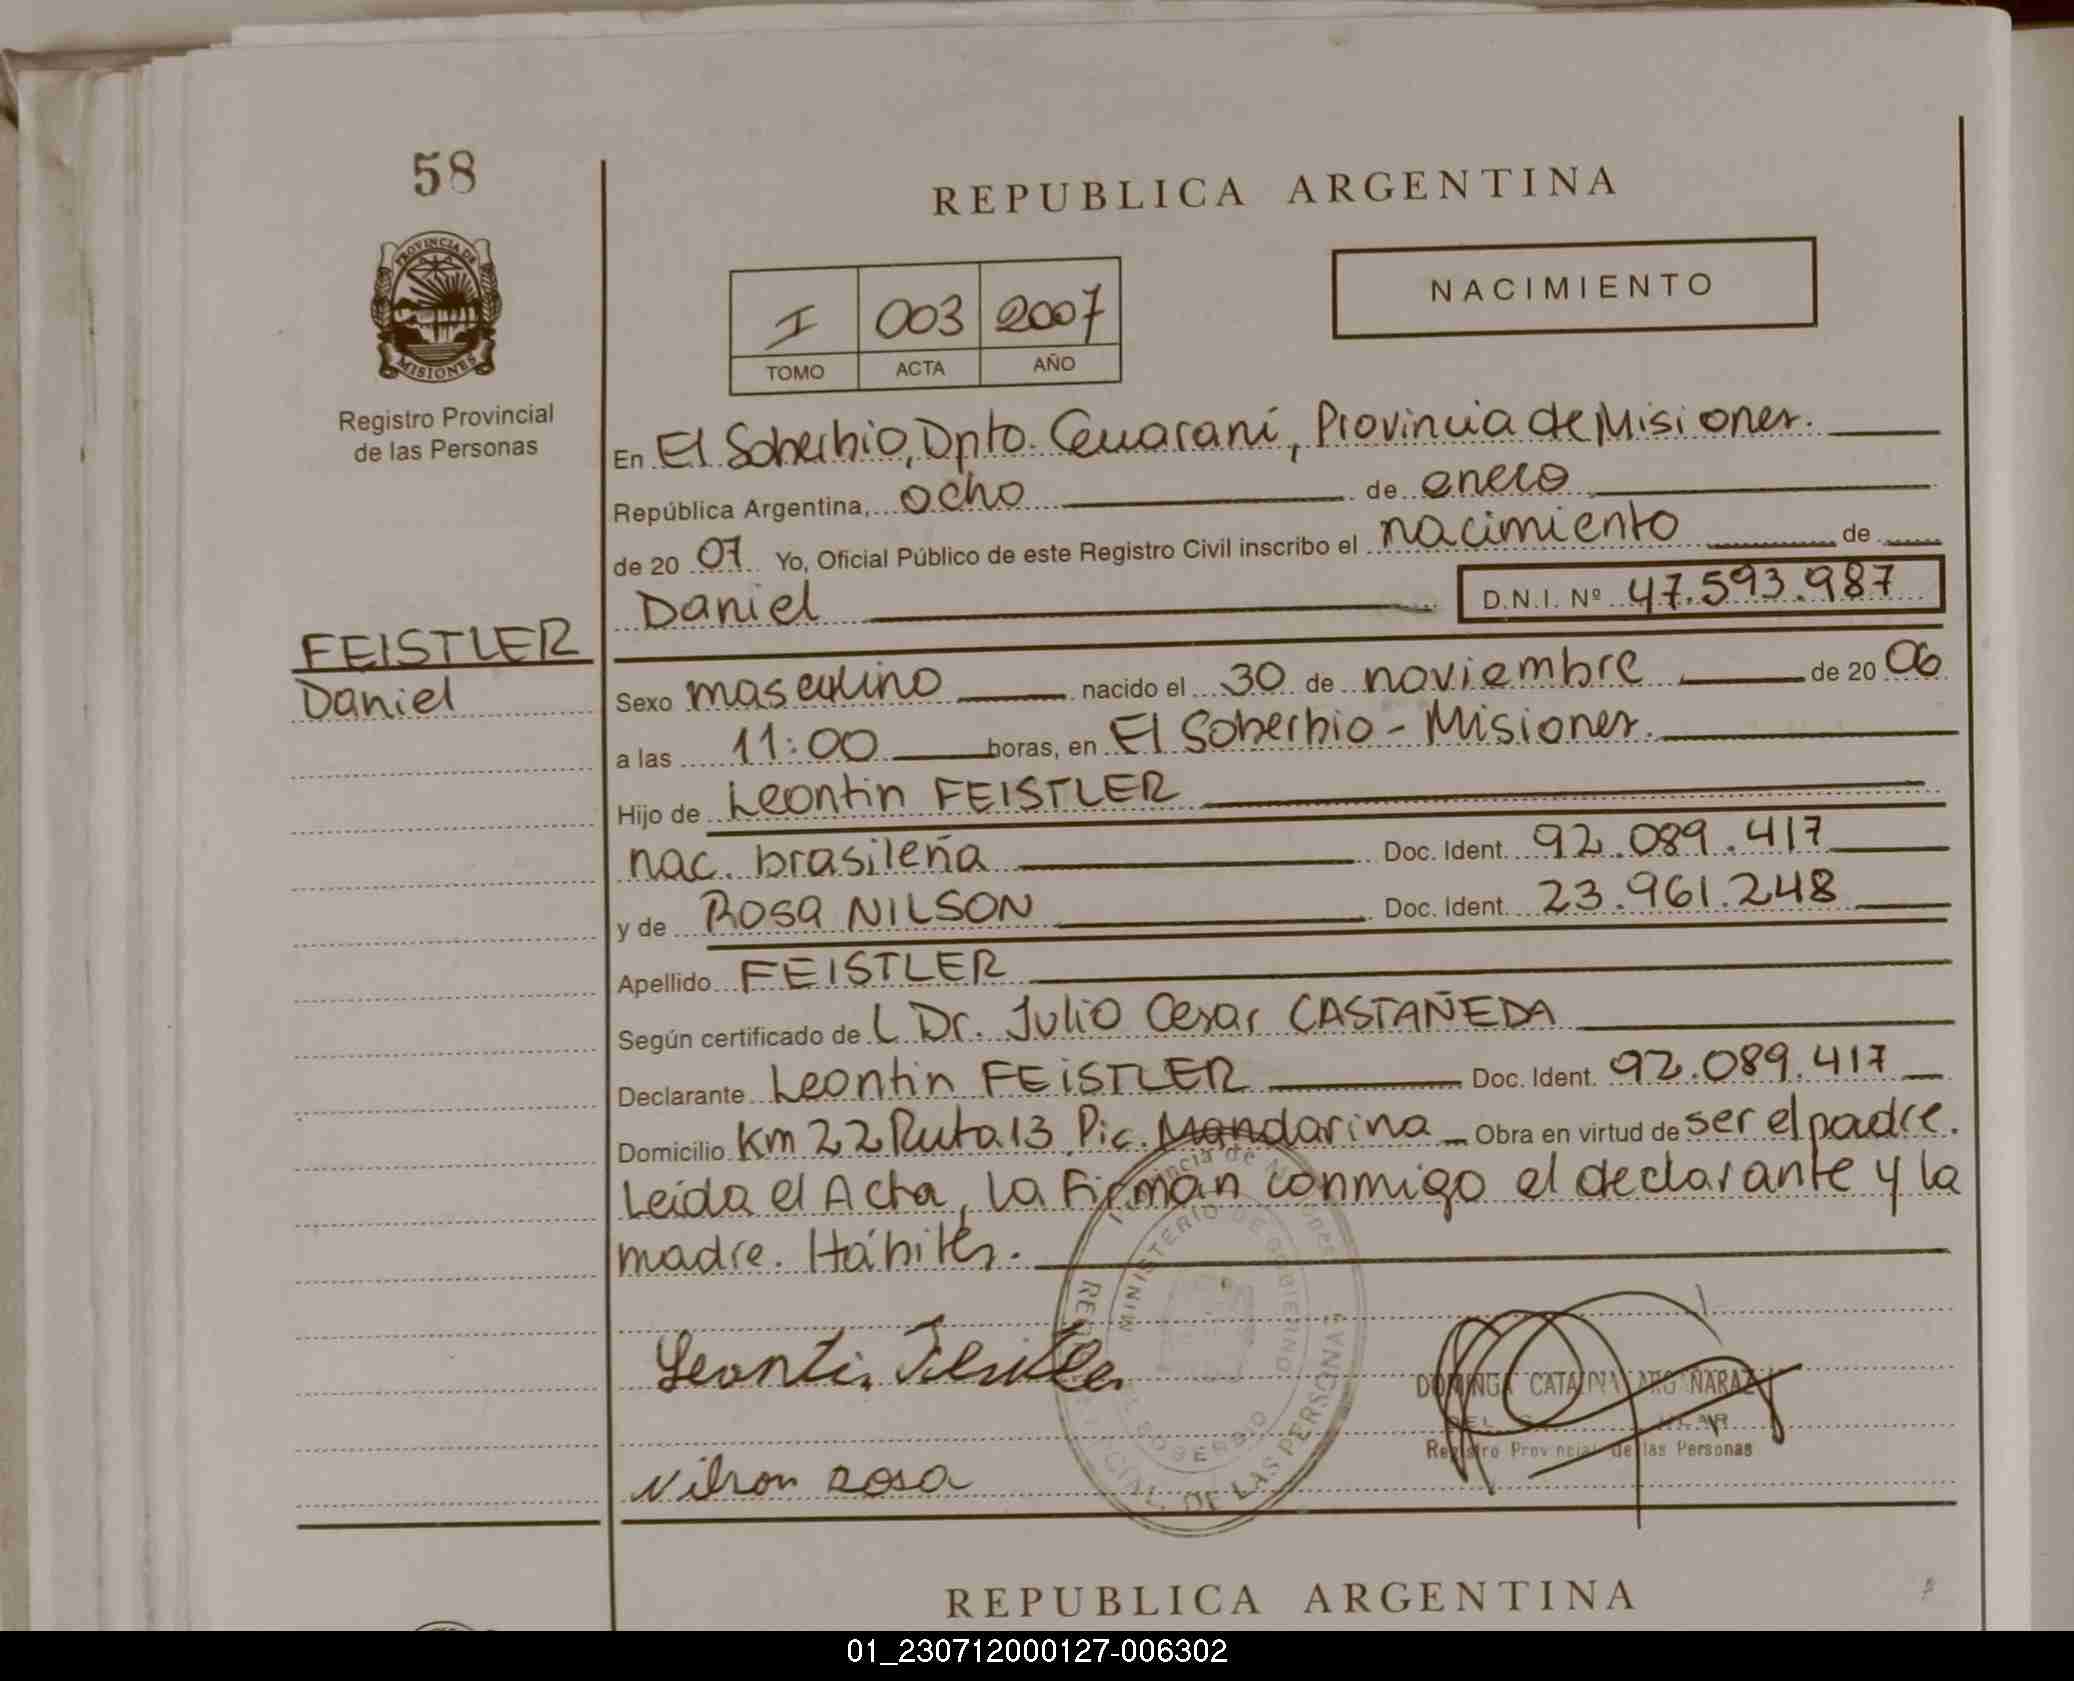 58
PROVINCIA DE
MISIONES
Registro Provincial
de las Personas
FEISTLER
Daniel
REPUBLICA ARGENTINA
I 003 2007
TOMO ACTA AÑO
NACIMIENTO
En El Soberbio, Dpto. Guaraní, Provincia de Misiones.
República Argentina, ocho de enero
de 20 07 Yo, Oficial Público de este Registro Civil inscribo el nacimiento de
Daniel D.N.I. Nº 47.593.987
Sexo masculino nacido el 30 de noviembre de 20 06
a las 11:00 horas, en El Soberbio - Misiones.
Hijo de Leontin FEISTLER
nac. brasileña Doc. Ident. 92.089.417
y de Rosa NILSON Doc. Ident. 23.961.248
Apellido FEISTLER
Según certificado de L Dr. Julio Cesar CASTAÑEDA
Declarante Leontin FEISTLER Doc. Ident. 92.089.417
Domicilio Km 22 Ruta 13 Pic. Mandarina Obra en virtud de ser el padre.
Leída el Acta, la Firman conmigo el declarante y la
madre. Hábiles.
Provincia de Misiones
MINISTERIO DE GOBIERNO
EL SOBERBIO
REGISTRO PROVINCIAL DE LAS PERSONAS
Leontin Feistler
DOMINGA CATALINA ARGAÑARAZ
Registro Provincial de las Personas
Nilson Rosa
REPUBLICA ARGENTINA
01_230712000127-006302